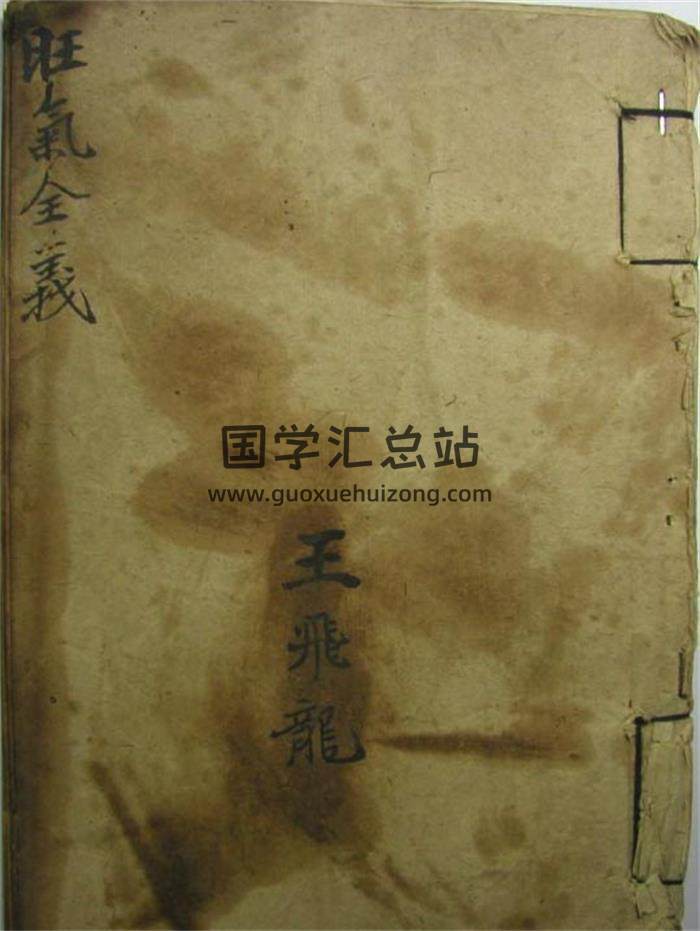 旺氣全義
国学汇总站
www.guoxuehuizong.com
王飛龍